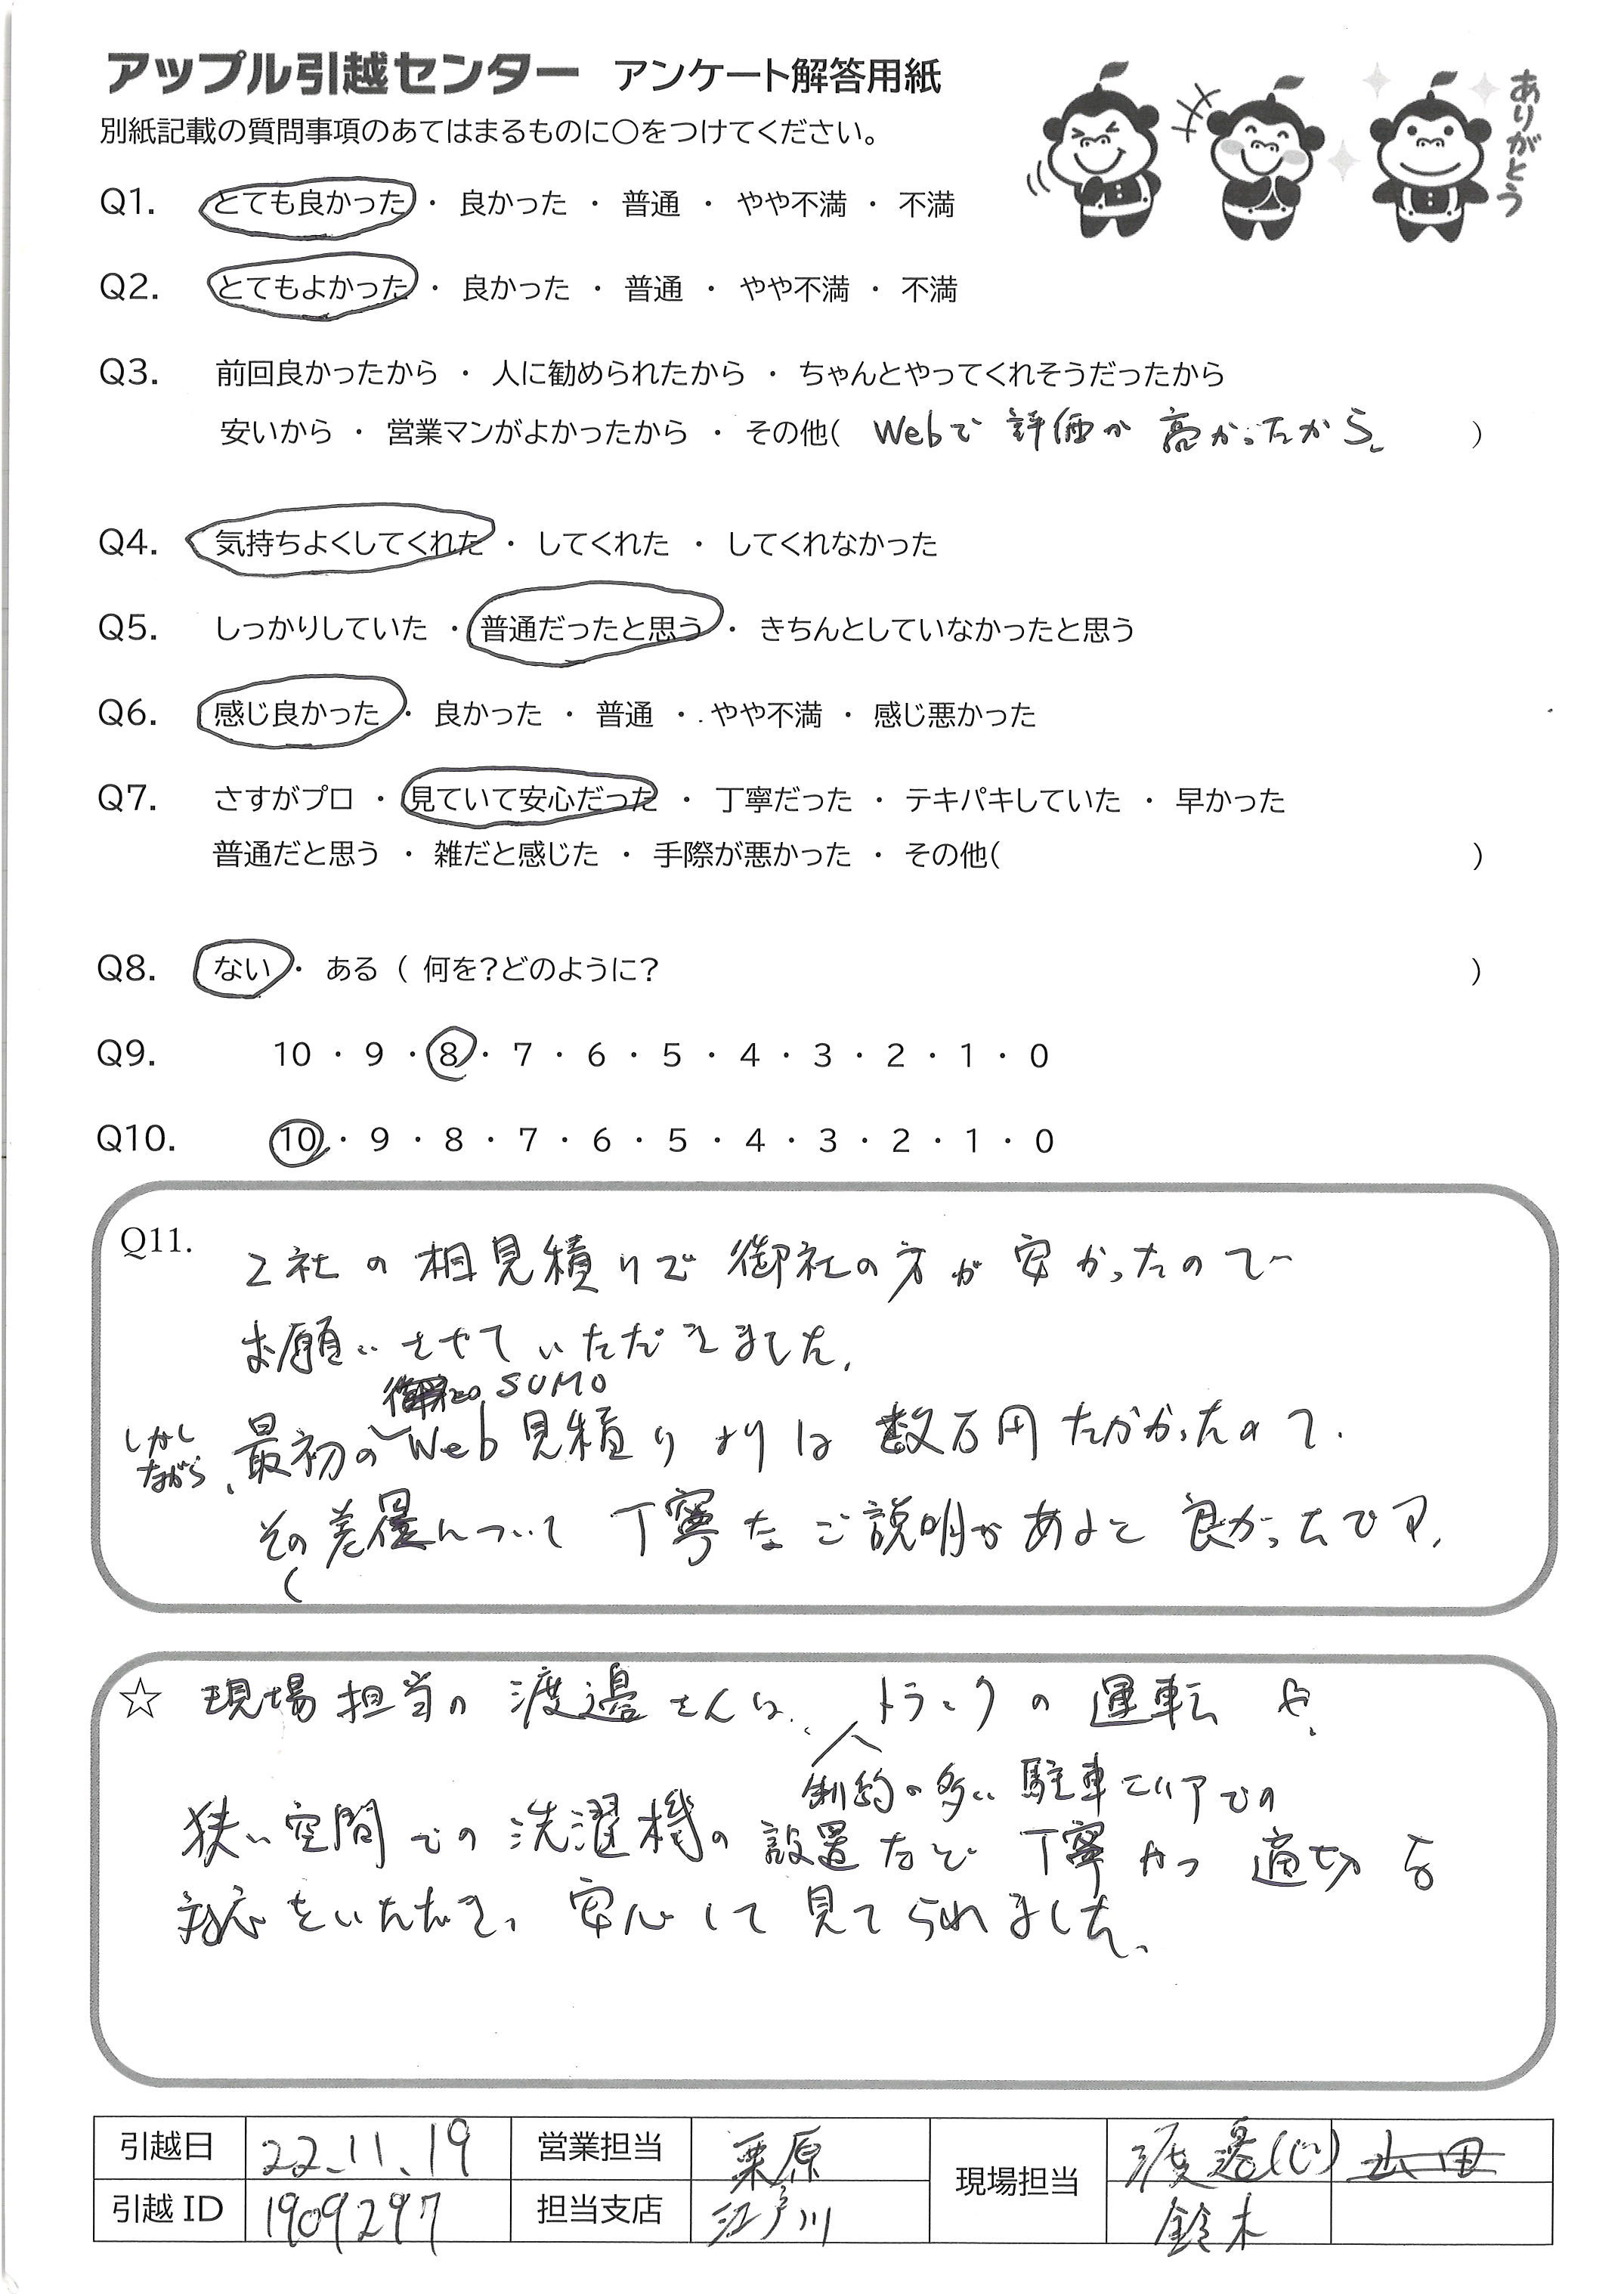 アップル引越センター アンケート解答用紙
ありがとう
別紙記載の質問事項のあてはまるものに○をつけてください。
Q1. とても良かった ・ 良かった ・ 普通 ・ やや不満 ・ 不満
Q2. とてもよかった ・ 良かった ・ 普通 ・ やや不満 ・ 不満
Q3. 前回良かったから ・ 人に勧められたから ・ ちゃんとやってくれそうだったから
安いから ・ 営業マンがよかったから ・ その他( Webで評価が高かったから。 )
Q4. 気持ちよくしてくれた ・ してくれた ・ してくれなかった
Q5. しっかりしていた ・ 普通だったと思う ・ きちんとしていなかったと思う
Q6. 感じ良かった ・ 良かった ・ 普通 ・ やや不満 ・ 感じ悪かった
Q7. さすがプロ ・ 見ていて安心だった ・ 丁寧だった ・ テキパキしていた ・ 早かった
普通だと思う ・ 雑だと感じた ・ 手際が悪かった ・ その他( )
Q8. ない ・ ある ( 何を?どのように? )
Q9. 10 ・ 9 ・ 8 ・ 7 ・ 6 ・ 5 ・ 4 ・ 3 ・ 2 ・ 1 ・ 0
Q10. 10 ・ 9 ・ 8 ・ 7 ・ 6 ・ 5 ・ 4 ・ 3 ・ 2 ・ 1 ・ 0
Q11. 2社の相見積りで御社の方が安かったので
お願いさせていただきました。
SUMO
しかしながら、最初のWeb見積りよりは数万円たかかったので、
その差異について丁寧なご説明があると良かったです。
☆ 現場担当の渡邊さんは、トラックの運転や、
制約の多い駐車エリアでの
狭い空間での洗濯機の設置など丁寧かつ適切な
対応をいただき、安心して見てられました。
引越日 22.11.19 営業担当 栗原 現場担当 渡邊(心) 山田
引越ID 1909297 担当支店 江戸川 鈴木